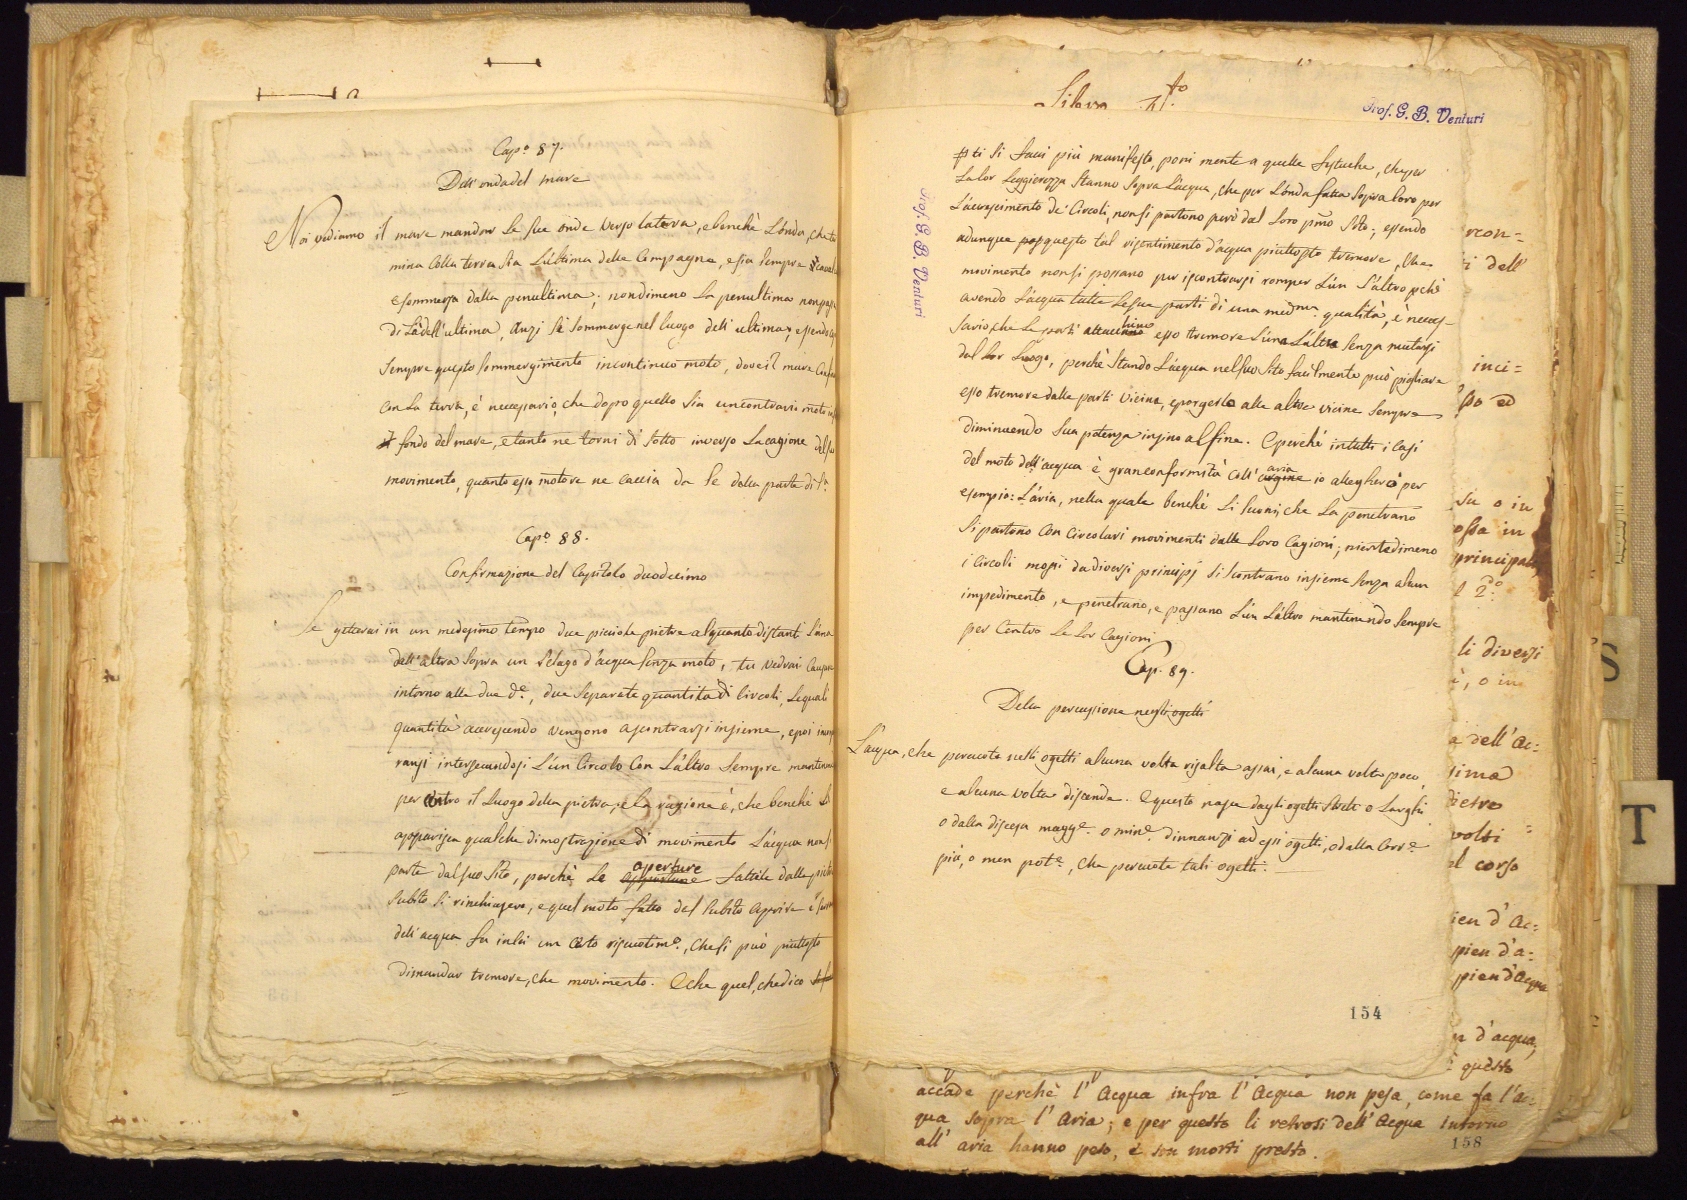 Capo. 87.
Dell'onda del mare
Noi vediamo il mare mandar le sue onde verso la terra, e benchè l'onda, che ter
mina colla terra sia l'ultima delle compagne, e sia sempre
e sommersa dalla penultima; nondimeno la penultima non passa
di là dell'ultima, anzi si sommerge nel luogo dell'ultima, essendo
sempre questo sommergimento in continuo moto, dove il mare
con la terra, è necessario, che dopo quello sia un contrari moto
fondo del mare, e tanto ne torni di sotto inverso la cagione del su
movimento, quanto esso motore ne caccia da se dalla parte di
Capo. 88.
Confirmazione del Capitolo duodecimo
Se getterai in un medesimo tempo due picciole pietre alquanto distanti l'una
dall'altra sopra un pelago d'acqua senza moto, tu vedrai
intorno alle due de., due separate quantità di circoli, le quali
quantità accrescendo vengono a scontrarsi insieme, e poi
rarsi intersecandosi l'un circolo con l'altro sempre mantenen
per centro il luogo della pietra, e la ragione è, che benchè
apparisca qualche dimostrazione di movimento l'acqua non si
parte dal suo sito, perchè le aperture fattele dalle pietre
subito si rinchiusero, e quel moto fatto del subito aprire e
dell'acqua fa in lei un certo riscuotimo., che si può piuttosto
dimandar tremore, che movimento. E che quel, che dico
Libro
Prof. G. B. Venturi
Prof. G. B. Venturi
ti si facci più manifesto, poni mente a quelle festuche, che per
la lor leggierezza stanno sopra l'acqua, che per l'onda fatta sopra loro per
l'accrescimento de' circoli, non si partono però dal loro pmo sito; essendo
adunque questo tal risentimento d'acqua piuttosto tremore, che
movimento non si possano per iscontrarsi romper l'un l'altro pchè
avendo l'acqua tutte le sue parti di una medma qualità, è neces-
sario, che le parti attacchino esso tremore l'una l'altra senza mutarsi
dal lor luogo, perchè stando l'acqua nel suo sito facilmente può pigliare
esso tremore dalle parti vicine, e porgerlo alle altre vicine sempre
diminuendo sua potenza insino al fine. E perchè in tutti i casi
del moto dell'acqua è gran conformità coll' aria io allegherò per
esempio: l'aria, nella quale benchè li suoni, che la penetrano
si partono con circolari movimenti dalle loro cagioni; nientedimeno
i circoli mossi da diversi principj si scontrano insieme senza alcun
impedimento, e penetrano, e passano l'un l'altro mantenendo sempre
per centro le lor cagioni
Cap. 89.
Della percussione negli ogetti
L'acqua, che percuote nelli ogetti alcuna volta risalta assai, e alcuna volta poco,
e alcuna volta discende. E questo nasce dagli ogetti stretti o larghi
o dalla discesa magge. o mine. dinnanzi ad essi ogetti, o dalla corre
più, o men pote., che percuote tali ogetti.
154
rcon=
i dell'
inci=
so
su o in
ossa in
principal
2o
li diversi
, o in
a dell'ac:
sima
pietre
volti
l corso
ien d'ac:
pien d'a:
pien d'acqua
n d'acqua,
questo
accade perchè l'acqua infra l'acqua non pesa, come fa l'ac:
qua sopra l'aria; e per questo li retrosi dell'acqua intorno
all'aria hanno peso, e son morti presto.
158
S
T